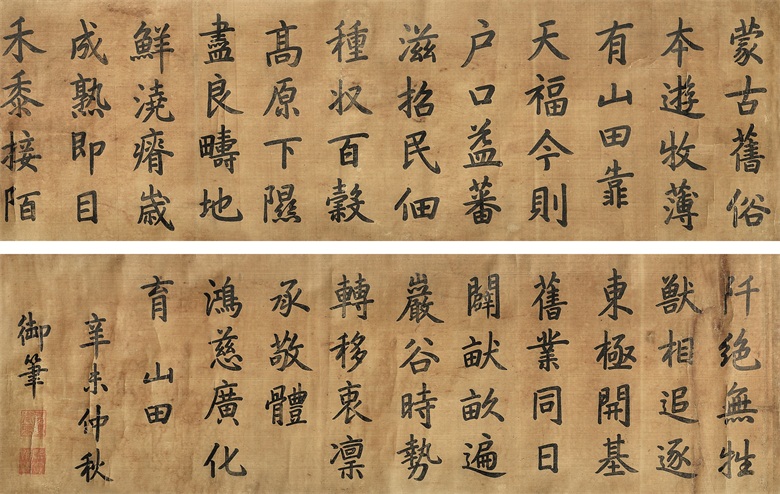 蒙古舊俗
本遊牧薄
有山田靠
天福今則
户口益蕃
滋招民佃
種收百穀
髙原下隰
盡良疇地
鮮澆瘠歲
成熟即目
禾黍接陌
阡絶無牲
獸相追逐
東極開基
舊業同日
闢猷畝遍
巖谷時勢
轉移衷凜
承敬體
鴻慈廣化
育 山田
辛未仲秋
御筆